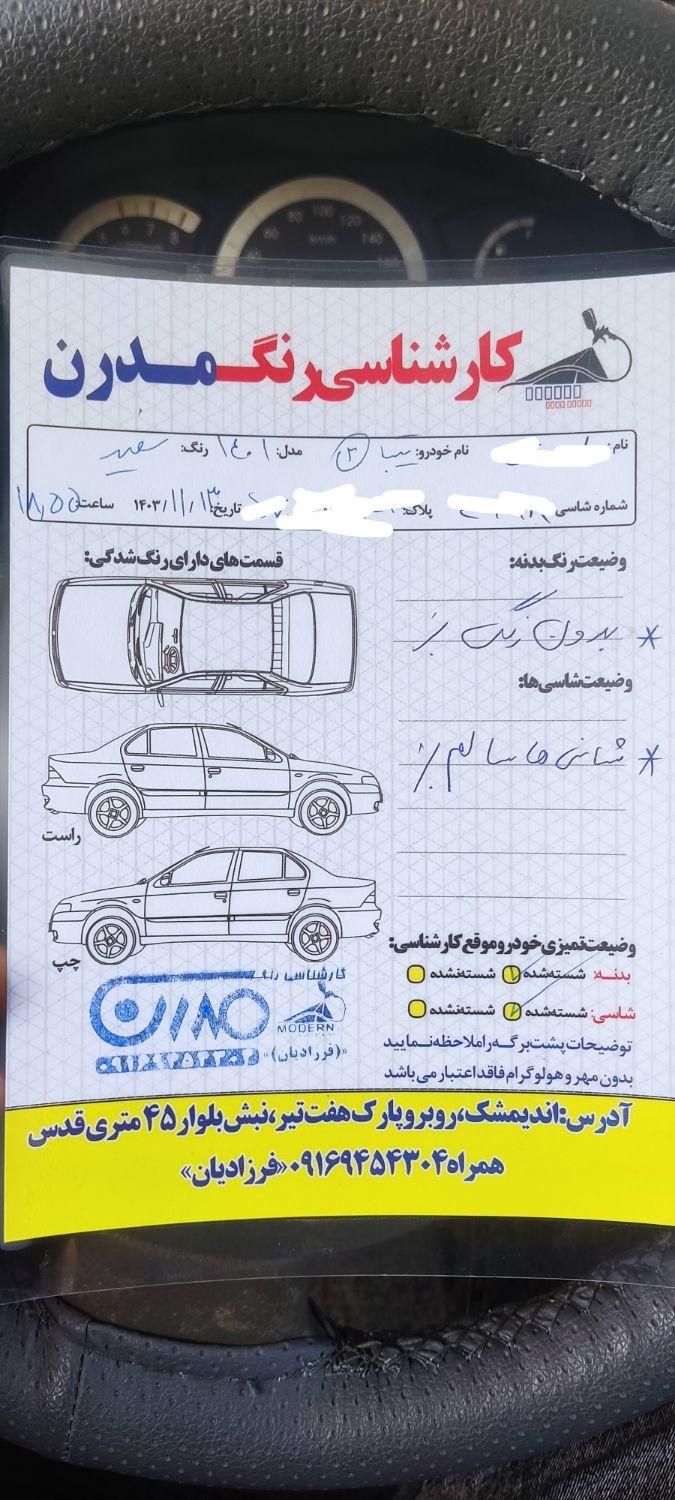 کارشناسی رنگ مدرن
نام
نام خودرو: تیبا ۲
مدل: ۱۴۰۱
رنگ: سفید
شماره شاسی
پلاک:
تاریخ: ۱۴۰۳/۱۱/۱۳
ساعت: ۱۸٫۵۵
قسمت‌های دارای رنگ شدگی:
وضیعت رنگ بدنه:
* بدون رنگ
وضیعت شاسی ها:
* شاسی ها سالم
راست
چپ
وضیعت تمیزی خودرو موقع کارشناسی:
بدنه: شسته شده شسته نشده
شاسی: شسته شده شسته نشده
توضیحات پشت برگه را ملاحظه نمایید
بدون مهر و هولوگرام فاقد اعتبار می باشد
کارشناسی رنگ
مدرن
MODERN
«(فرزادیان)»
آدرس: اندیمشک، روبرو پارک هفت تیر، نبش بلوار ۴۵ متری قدس
همراه ۰۹۱۶۹۴۵۴۳۰۴ «فرزادیان»